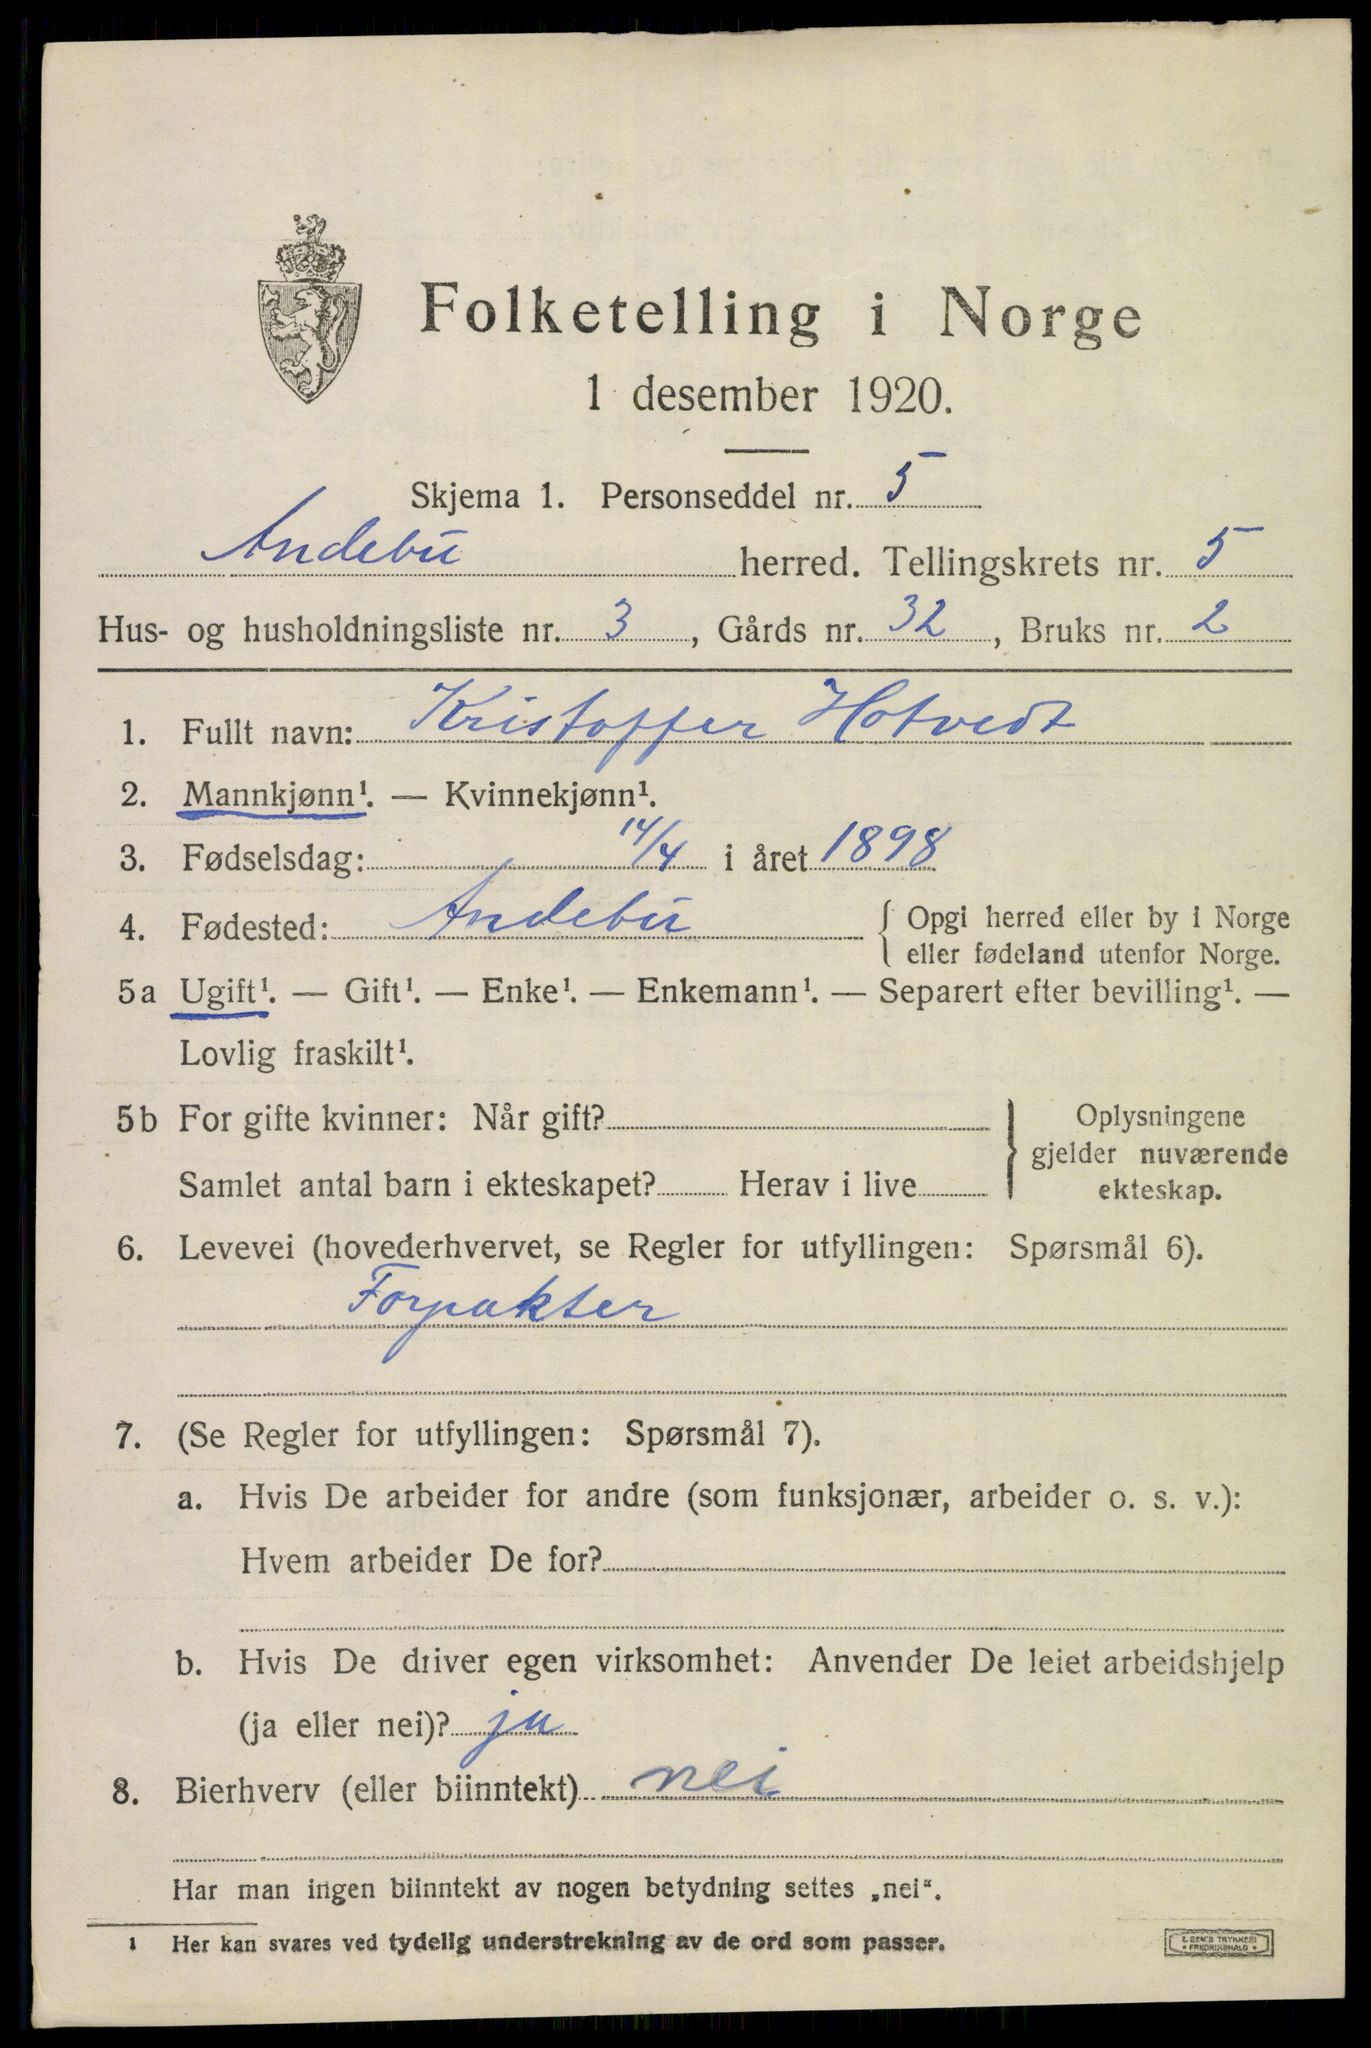 Folketelling i Norge
1 desember 1920.
Skjema 1. Personseddel nr. 5
Andebu herred. Tellingskrets nr. 5
Hus- og husholdningsliste nr. 3, Gårds nr. 32, Bruks nr. 2
1. Fullt navn: Kristoffer Hotvedt
2. Mannkjønn¹. — Kvinnekjønn¹.
3. Fødselsdag: 14/4 i året 1898
4. Fødested: Andebu { Opgi herred eller by i Norge
eller fødeland utenfor Norge.
5a Ugift¹. — Gift¹. — Enke¹. — Enkemann¹. — Separert efter bevilling¹. —
Lovlig fraskilt¹.
5b For gifte kvinner: Når gift? } Oplysningene
gjelder nuværende
Samlet antal barn i ekteskapet? Herav i live ekteskap.
6. Levevei (hovederhvervet, se Regler for utfyllingen: Spørsmål 6).
Forpakter
7. (Se Regler for utfyllingen: Spørsmål 7).
a. Hvis De arbeider for andre (som funksjonær, arbeider o. s. v.):
Hvem arbeider De for?
b. Hvis De driver egen virksomhet: Anvender De leiet arbeidshjelp
(ja eller nei)? ja
8. Bierhverv (eller biinntekt) nei
Har man ingen biinntekt av nogen betydning settes „nei“.
1 Her kan svares ved tydelig understrekning av de ord som passer.
E. SEM'S TRYKKERI
• FREDRIKSHALD •